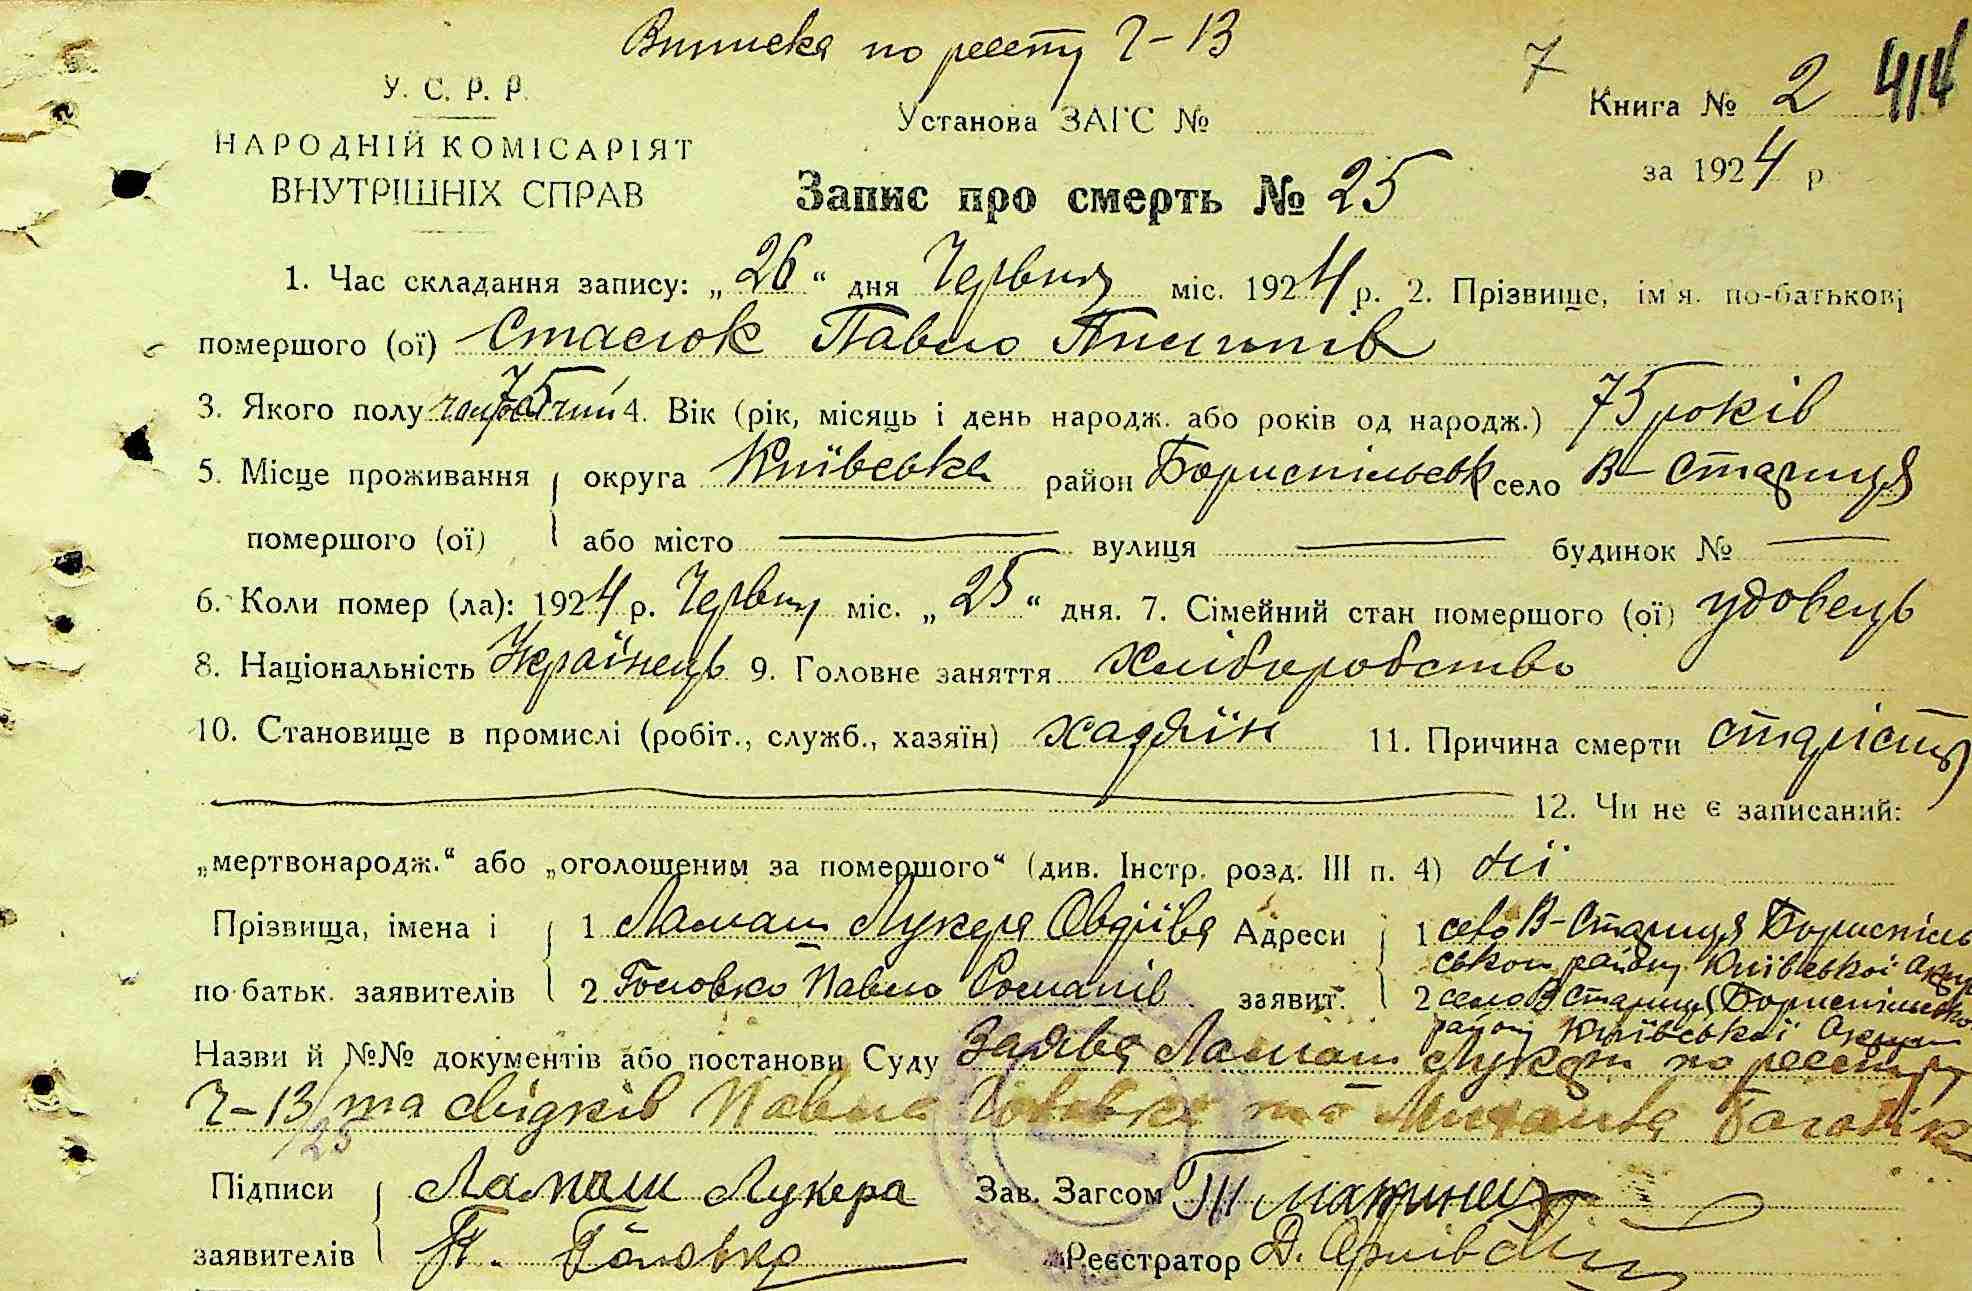 Виписка по реєсту Ч-13
7
414
У. С. Р. Р.
НАРОДНІЙ КОМІСАРІЯТ
ВНУТРІШНІХ СПРАВ
Установа ЗАГС №
Книга № 2
за 1924 р.
Запис про смерть № 25
1. Час складання запису: „26“ дня Червня міс. 1924 р. 2. Прізвище, ім'я, по-батькові
помершого (ої) Стасюк Павло
3. Якого полу 75 4. Вік (рік, місяць і день народж. або років од народж.) 75 років
5. Місце проживання округа Київська район Бориспільськ село В-Стариця
помершого (ої) або місто вулиця будинок №
6. Коли помер (ла): 1924 р. Червня міс. „25“ дня. 7. Сімейний стан помершого (ої) удовець
8. Національність Українець 9. Головне заняття Хліборобство
10. Становище в промислі (робіт., служб., хазяїн) хазяїн 11. Причина смерти старість
12. Чи не є записаний:
„мертвонародж.“ або „оголошеним за помершого“ (див. Інстр. розд. III п. 4) ні
Прізвища, імена і 1 Ламаш Лукера Овдіївa Адреси 1 село В-Стариця Бориспіль
ського району Київської Округ
по-батьк. заявителів 2 Головко Павло Романів заявит. 2 село В Стариця Бориспільсько
району Київської Округи
Назви й №№ документів або постанови Суду Заява Ламаш Лукери по реєстру
Ч-13/25 та свідків Павла Головка та Михайла
Підписи Ламаш Лукера Зав. Загсом
заявителів П. Головко Реєстратор Д.